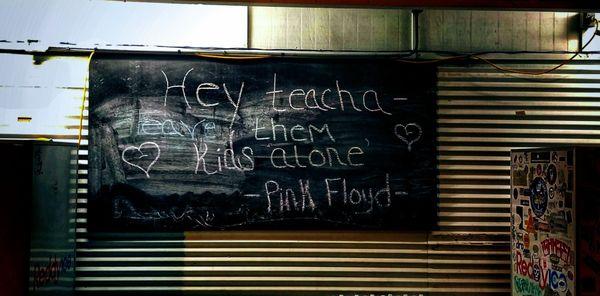 Hey teacha -
leave them
Kids alone
- Pink Floyd -